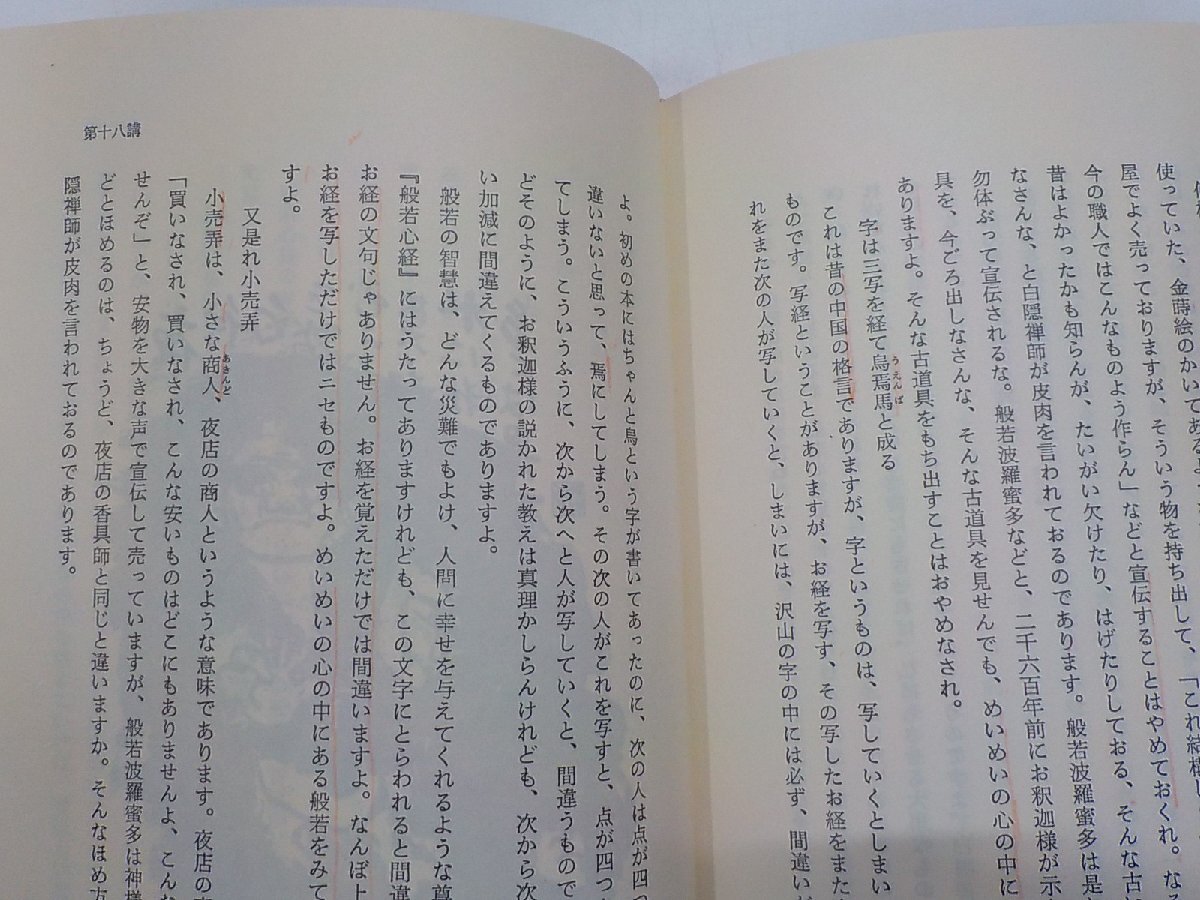 使っていた、金蒔絵のかいてある
屋でよく売っておりますが、そういう物を持ち出して、「これ結構
今の職人ではこんなものよう作らん」などと宣伝することはやめておくれ。
昔はよかったかも知らんが、たいがい欠けたり、はげたりしておる、そんな古
なさんな、と白隠禅師が皮肉を言われておるのであります。般若波羅蜜多は是
勿体ぶって宣伝されるな。般若波羅蜜多などと、二千六百年前にお釈迦様が示
具を、今ごろ出しなさんな、そんな古道具を見せんでも、めいめいの心の中に
ありますよ。そんな古道具をもち出すことはおやめなされ。
字は三写を経て烏焉馬と成る
うえんば
これは昔の中国の格言でありますが、字というものは、写していくとしまい
ものです。写経ということがありますが、お経を写す、その写したお経をまた
れをまた次の人が写していくと、しまいには、沢山の字の中には必ず、間違い
第十八講
よ。初めの本にはちゃんと烏という字が書いてあったのに、次の人は点が四つ
違いないと思って、焉にしてしまう。その次の人がこれを写すと、点が四つ
てしまう。こういうふうに、次から次へと人が写していくと、間違うもので
どそのように、お釈迦様の説かれた教えは真理かしらんけれども、次から次
い加減に間違えてくるものでありますよ。
般若の智慧は、どんな災難でもよけ、人間に幸せを与えてくれるような
『般若心経』にはうたってありますけれども、この文字にとらわれると間違
お経の文句じゃありません。お経を覚えただけでは間違いますよ。なんぼ上
お経を写しただけではニセものですよ。めいめいの心の中にある般若をみて
すよ。
又是れ小売弄
小売弄は、小さな商人、夜店の商人というような意味であります。夜店の
あきんど
「買いなされ、買いなされ、こんな安いものはどこにもありませんよ、こん
せんぞ」と、安物を大きな声で宣伝して売っていますが、般若波羅蜜多は神様
どとほめるのは、ちょうど、夜店の香具師と同じと違いますか。そんなほめ方
隠禅師が皮肉を言われておるのであります。